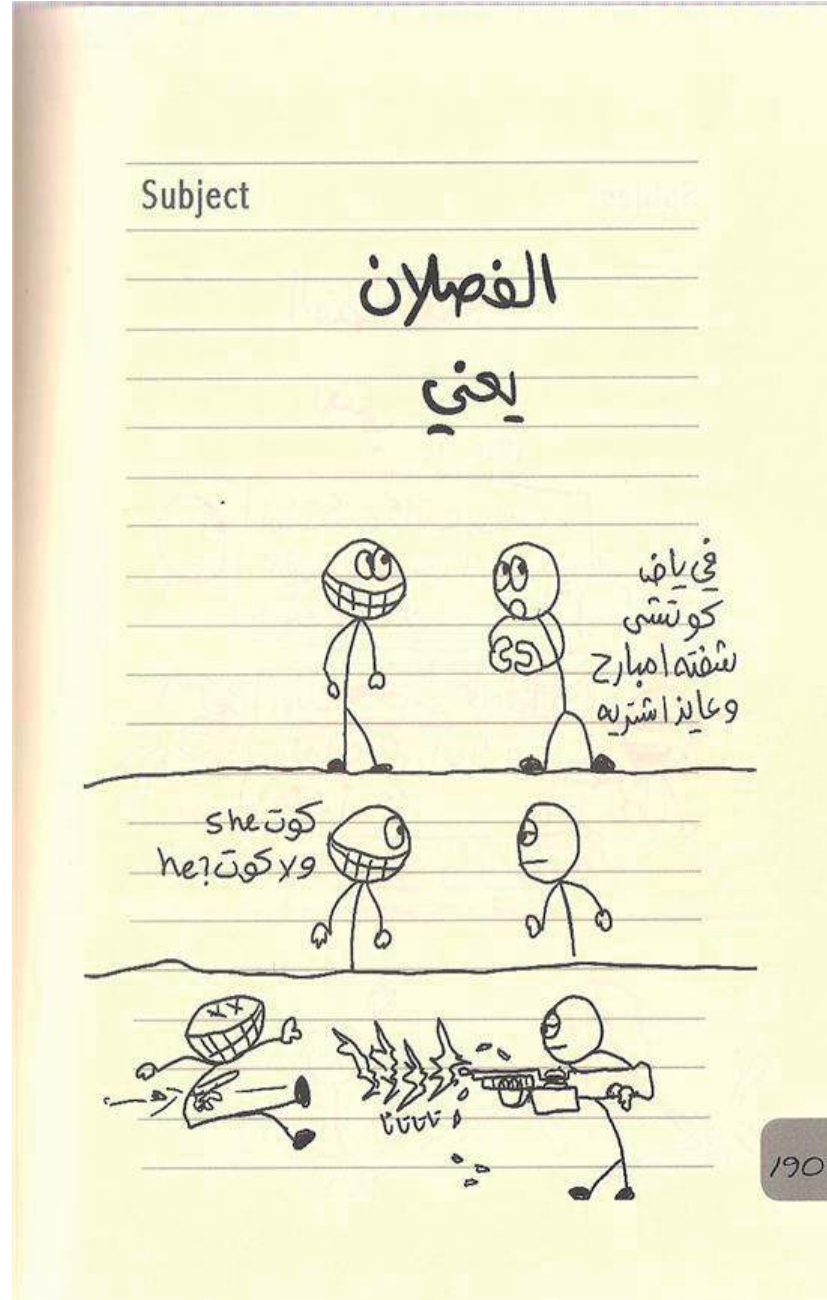 Subject
الفصلان
يعني
في ياض
كوتشى
شفته امبارح
وعايز اشتريه
كوت she
ولا كوت he?
تاتاتاتا
190